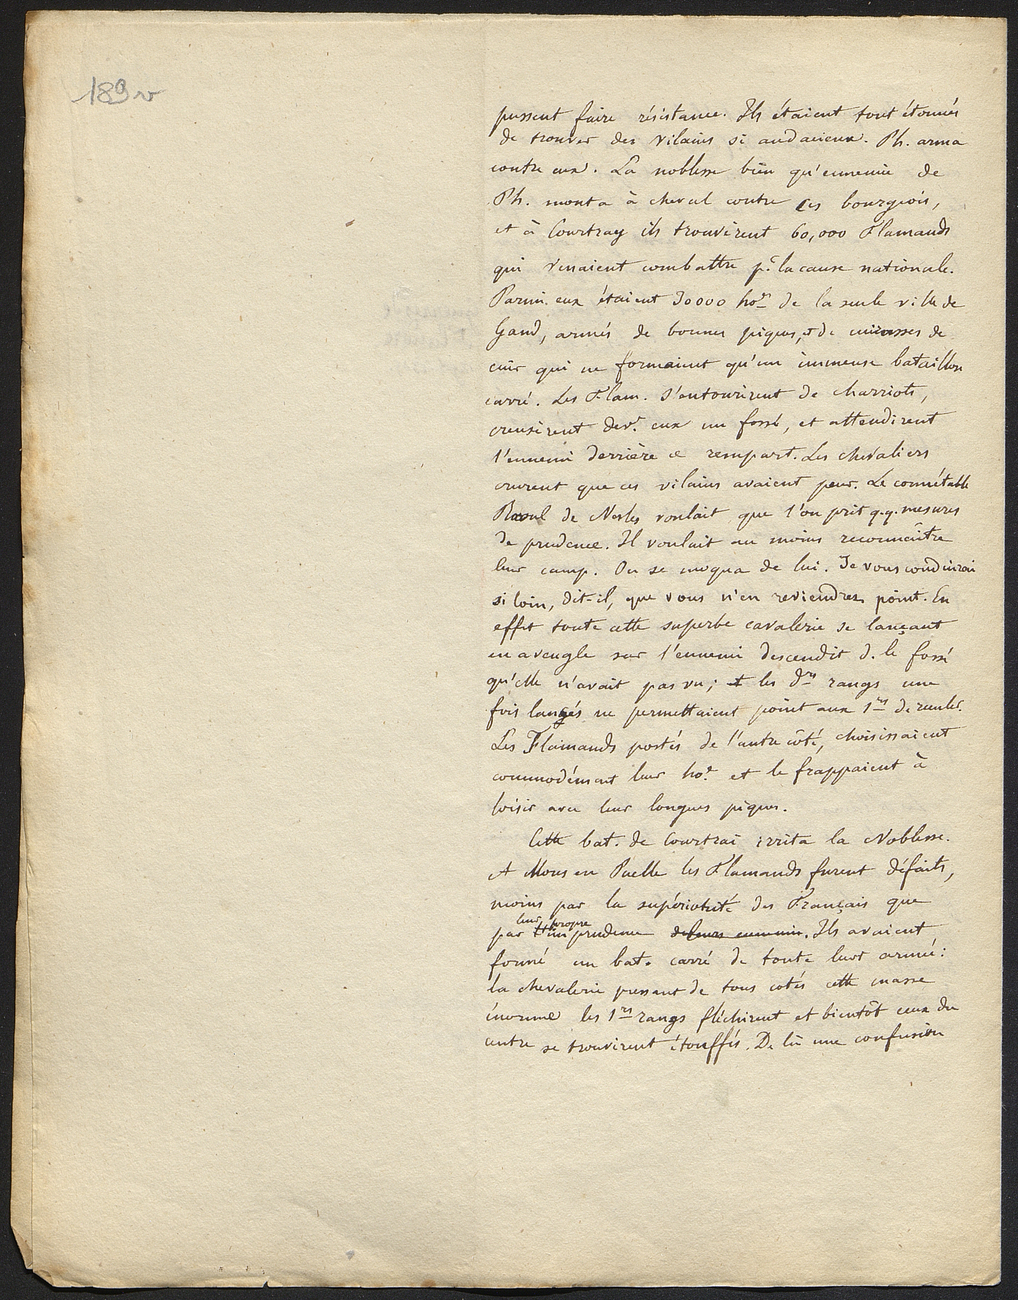 189 v
pussent faire résistance. Ils étaient tout étonnés
de trouver des vilains si audacieux. Ph. arma
contre eux. La noblesse bien qu'ennemie de
Ph. monta à cheval contre ces bourgeois,
et à Courtray ils trouvèrent 60,000 Flamands
qui venaient combattre pr. la cause nationale.
Parmi eux étaient 30000 hoes de la seule ville de
Gand, armés de bonnes piques, et de cuirasses de
cuir qui ne formaient qu'un immense bataillon
carré. Les Flam. s'entourèrent de charriots,
creusèrent devt. eux un fossé, et attendirent
l'ennemi derrière ce rempart. Les chevaliers
crurent que ces vilains avaient peur. Le connétable
Raoul de Nesles voulait que l'on prit q.q. mesures
de prudence. Il voulait au moins reconnaître
leur camp. On se moqua de lui. Je vous conduirai
si loin, dit-il, que vous n'en reviendrez point. En
effet toute cette superbe cavalerie se lançant
en aveugle sur l'ennemi descendit d. le fossé
qu'elle n'avait pas vu; et les drs rangs une
fois lancés ne permettaient point aux 1ers de reculer.
Les Flamands postés de l'autre côté, choisissaient
commodément leur hoe et le frappaient à
loisir avec leur longues piques.
Cette bat. de Courtrai irrita la Noblesse.
A Mons en Puelle les Flamands furent défaits,
moins par la supériorité des Français que
par leur propre imprudence de leurs ennemis. Ils avaient
formé un bat. carré de toute leur armée:
la chevalerie pressant de tous cotés cette masse
énorme les 1ers rangs fléchirent et bientôt ceux du
centre se trouvèrent étouffés. De là une confusion